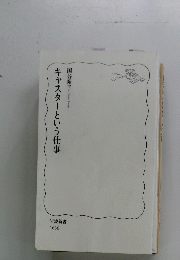 国谷裕子
キャスターという仕事
岩波新書
1636